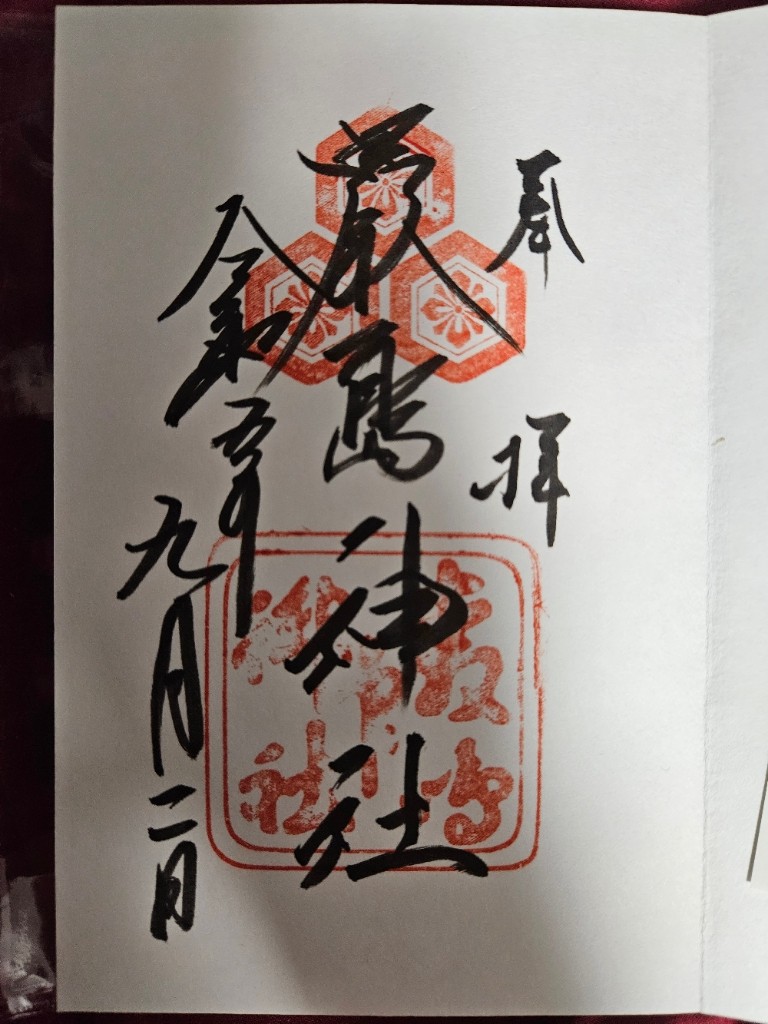 奉拝
厳島神社
令和五年
九月二日
厳島
神社